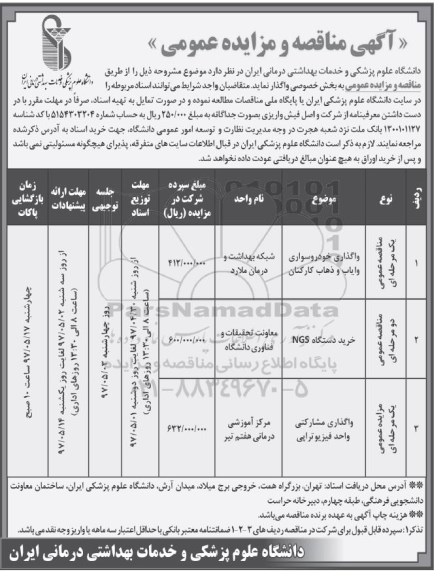 « آگهی مناقصه و مزایده عمومی »
دانشگاه علوم پزشکی و خدمات بهداشتی درمانی ایران
دانشگاه علوم پزشکی و خدمات بهداشتی درمانی ایران در نظر دارد موضوع مشروحه ذیل را از طریق
مناقصه و مزایده عمومی به بخش خصوصی واگذار نماید. متقاضیان واجد شرایط می‌توانند اسناد مربوطه را
در سایت دانشگاه علوم پزشکی ایران یا پایگاه ملی مناقصات مطالعه نموده و در صورت تمایل به تهیه اسناد، صرفاً در مهلت مقرر با در
دست داشتن معرفینامه از شرکت و اصل فیش واریزی بصورت جداگانه به مبلغ ۲۵۰/۰۰۰ ریال به حساب شماره ۵۱۵۴۳۰۳۲۰۴ با کد شناسه
۱۳۰۰۱۰۱۱۲۷ بانک ملت نزد شعبه هجرت در وجه مدیریت نظارت و توسعه امور عمومی دانشگاه، جهت خرید اسناد به آدرس ذکرشده
مراجعه نمایند. لازم به ذکر است دانشگاه علوم پزشکی ایران در قبال اطلاعات سایت های متفرقه، پذیرای هیچگونه مسئولیتی نمی باشد
و پس از خرید اوراق به هیچ عنوان مبالغ دریافتی عودت داده نخواهد شد.
ردیف نوع موضوع نام واحد مبلغ سپرده شرکت در مزایده (ریال) مهلت توزیع اسناد جلسه توجیهی مهلت ارائه پیشنهادات زمان بازگشایی پاکات
۱ یک مرحله ای مناقصه عمومی واگذاری خودروسواری وایاب و ذهاب کارکنان شبکه بهداشت و درمان ملارد ۴۱۲/۰۰۰/۰۰۰
۲ دو مرحله ای مناقصه عمومی خرید دستگاه NGS معاونت تحقیقات و فناوری دانشگاه ۶۰۰/۰۰۰/۰۰۰
۳ یک مرحله ای مزایده عمومی واگذاری مشارکتی واحد فیزیوتراپی مرکز آموزشی درمانی هفتم تیر ۶۲۲/۰۰۰/۰۰۰
از روز شنبه ۹۷/۰۴/۳۰ لغایت روز دوشنبه ۹۷/۰۵/۰۱ (ساعت ۸ الی ۱۳:۳۰ روزهای اداری)
روز چهارشنبه ۹۷/۰۵/۰۳
از روز سه شنبه ۹۷/۰۵/۰۲ لغایت روز یکشنبه ۹۷/۰۵/۱۴ (ساعت ۸ الی ۱۳:۳۰ روزهای اداری)
چهارشنبه ۹۷/۰۵/۱۷ ساعت ۱۰ صبح
ParsNamadData
پایگاه اطلاع رسانی مناقصه و مزایده
۰۲۱-۸۸۳۴۹۶۷۰-۵
** آدرس محل دریافت اسناد: تهران، بزرگراه همت، خروجی برج میلاد، میدان آرش، دانشگاه علوم پزشکی ایران، ساختمان معاونت
دانشجویی فرهنگی، طبقه چهارم، دبیرخانه حراست
** هزینه چاپ آگهی به عهده برنده مناقصه می‌باشد.
تذکر۱: سپرده قابل قبول برای شرکت در مناقصه ردیف های ۳-۲-۱ ضمانتنامه معتبر بانکی با حداقل اعتبار سه ماهه یا واریز وجه نقد می باشد.
دانشگاه علوم پزشکی و خدمات بهداشتی درمانی ایران